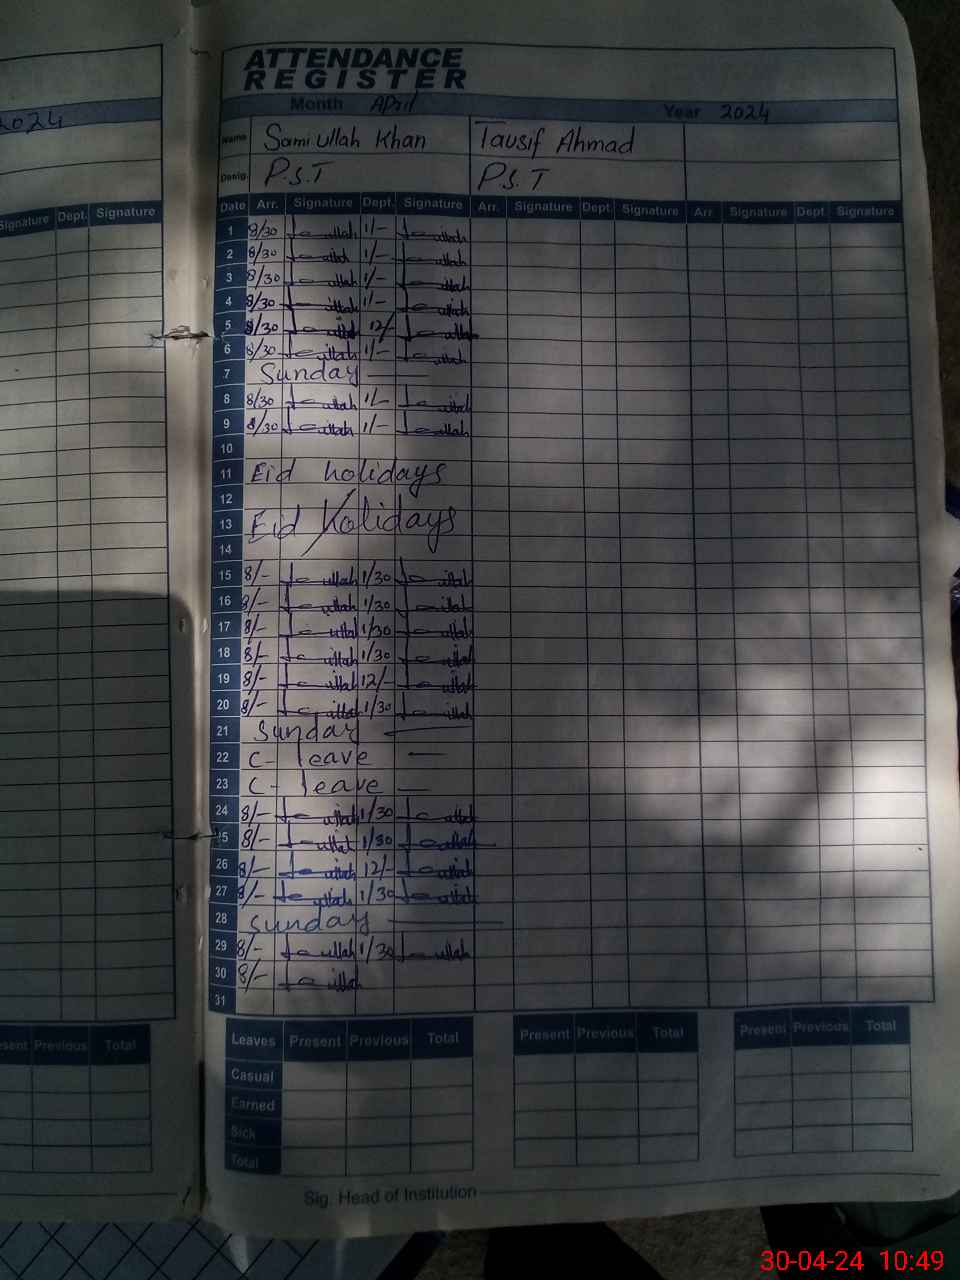 ATTENDANCE
REGISTER
2024
Month April Year 2024
Name Sami ullah Khan Tausif Ahmad
Desig. P.S.T P.S.T
Signature Dept. Signature
Date Arr. Signature Dept. Signature Arr. Signature Dept. Signature Arr Signature Dept. Signature
1 8/30 ullah 1/- ullah
2 8/30 ullah 1/- ullah
3 8/30 ullah 1/- ullah
4 8/30 ullah 1/- ullah
5 8/30 ullah 12/- ullah
6 8/30 ullah 1/- ullah
7 Sunday
8 8/30 ullah 1/- ullah
9 8/30 ullah 1/- ullah
10
11 Eid holidays
12
13 Eid Holidays
14
15 8/- ullah 1/30 ullah
16 8/- ullah 1/30 ullah
17 8/- ullah 1/30 ullah
18 8/- ullah 1/30 ullah
19 8/- ullah 12/- ullah
20 8/- ullah 1/30 ullah
21 Sunday
22 C- leave
23 C- leave
24 8/- ullah 1/30 ullah
25 8/- ullah 1/30 ullah
26 8/- ullah 12/- ullah
27 8/- ullah 1/30 ullah
28 Sunday
29 8/- ullah 1/30 ullah
30 8/- ullah
31
Previous Total
Leaves Present Previous Total Present Previous Total Present Previous Total
Casual
Earned
Sick
Total
Sig. Head of Institution
30-04-24 10:49